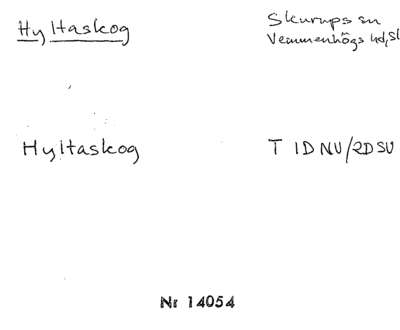 Hyltaskog
Skurups sn
Vemmenhögs hd, Sk
Hyltaskog
T 1D NV/2D SV
Nr 14054